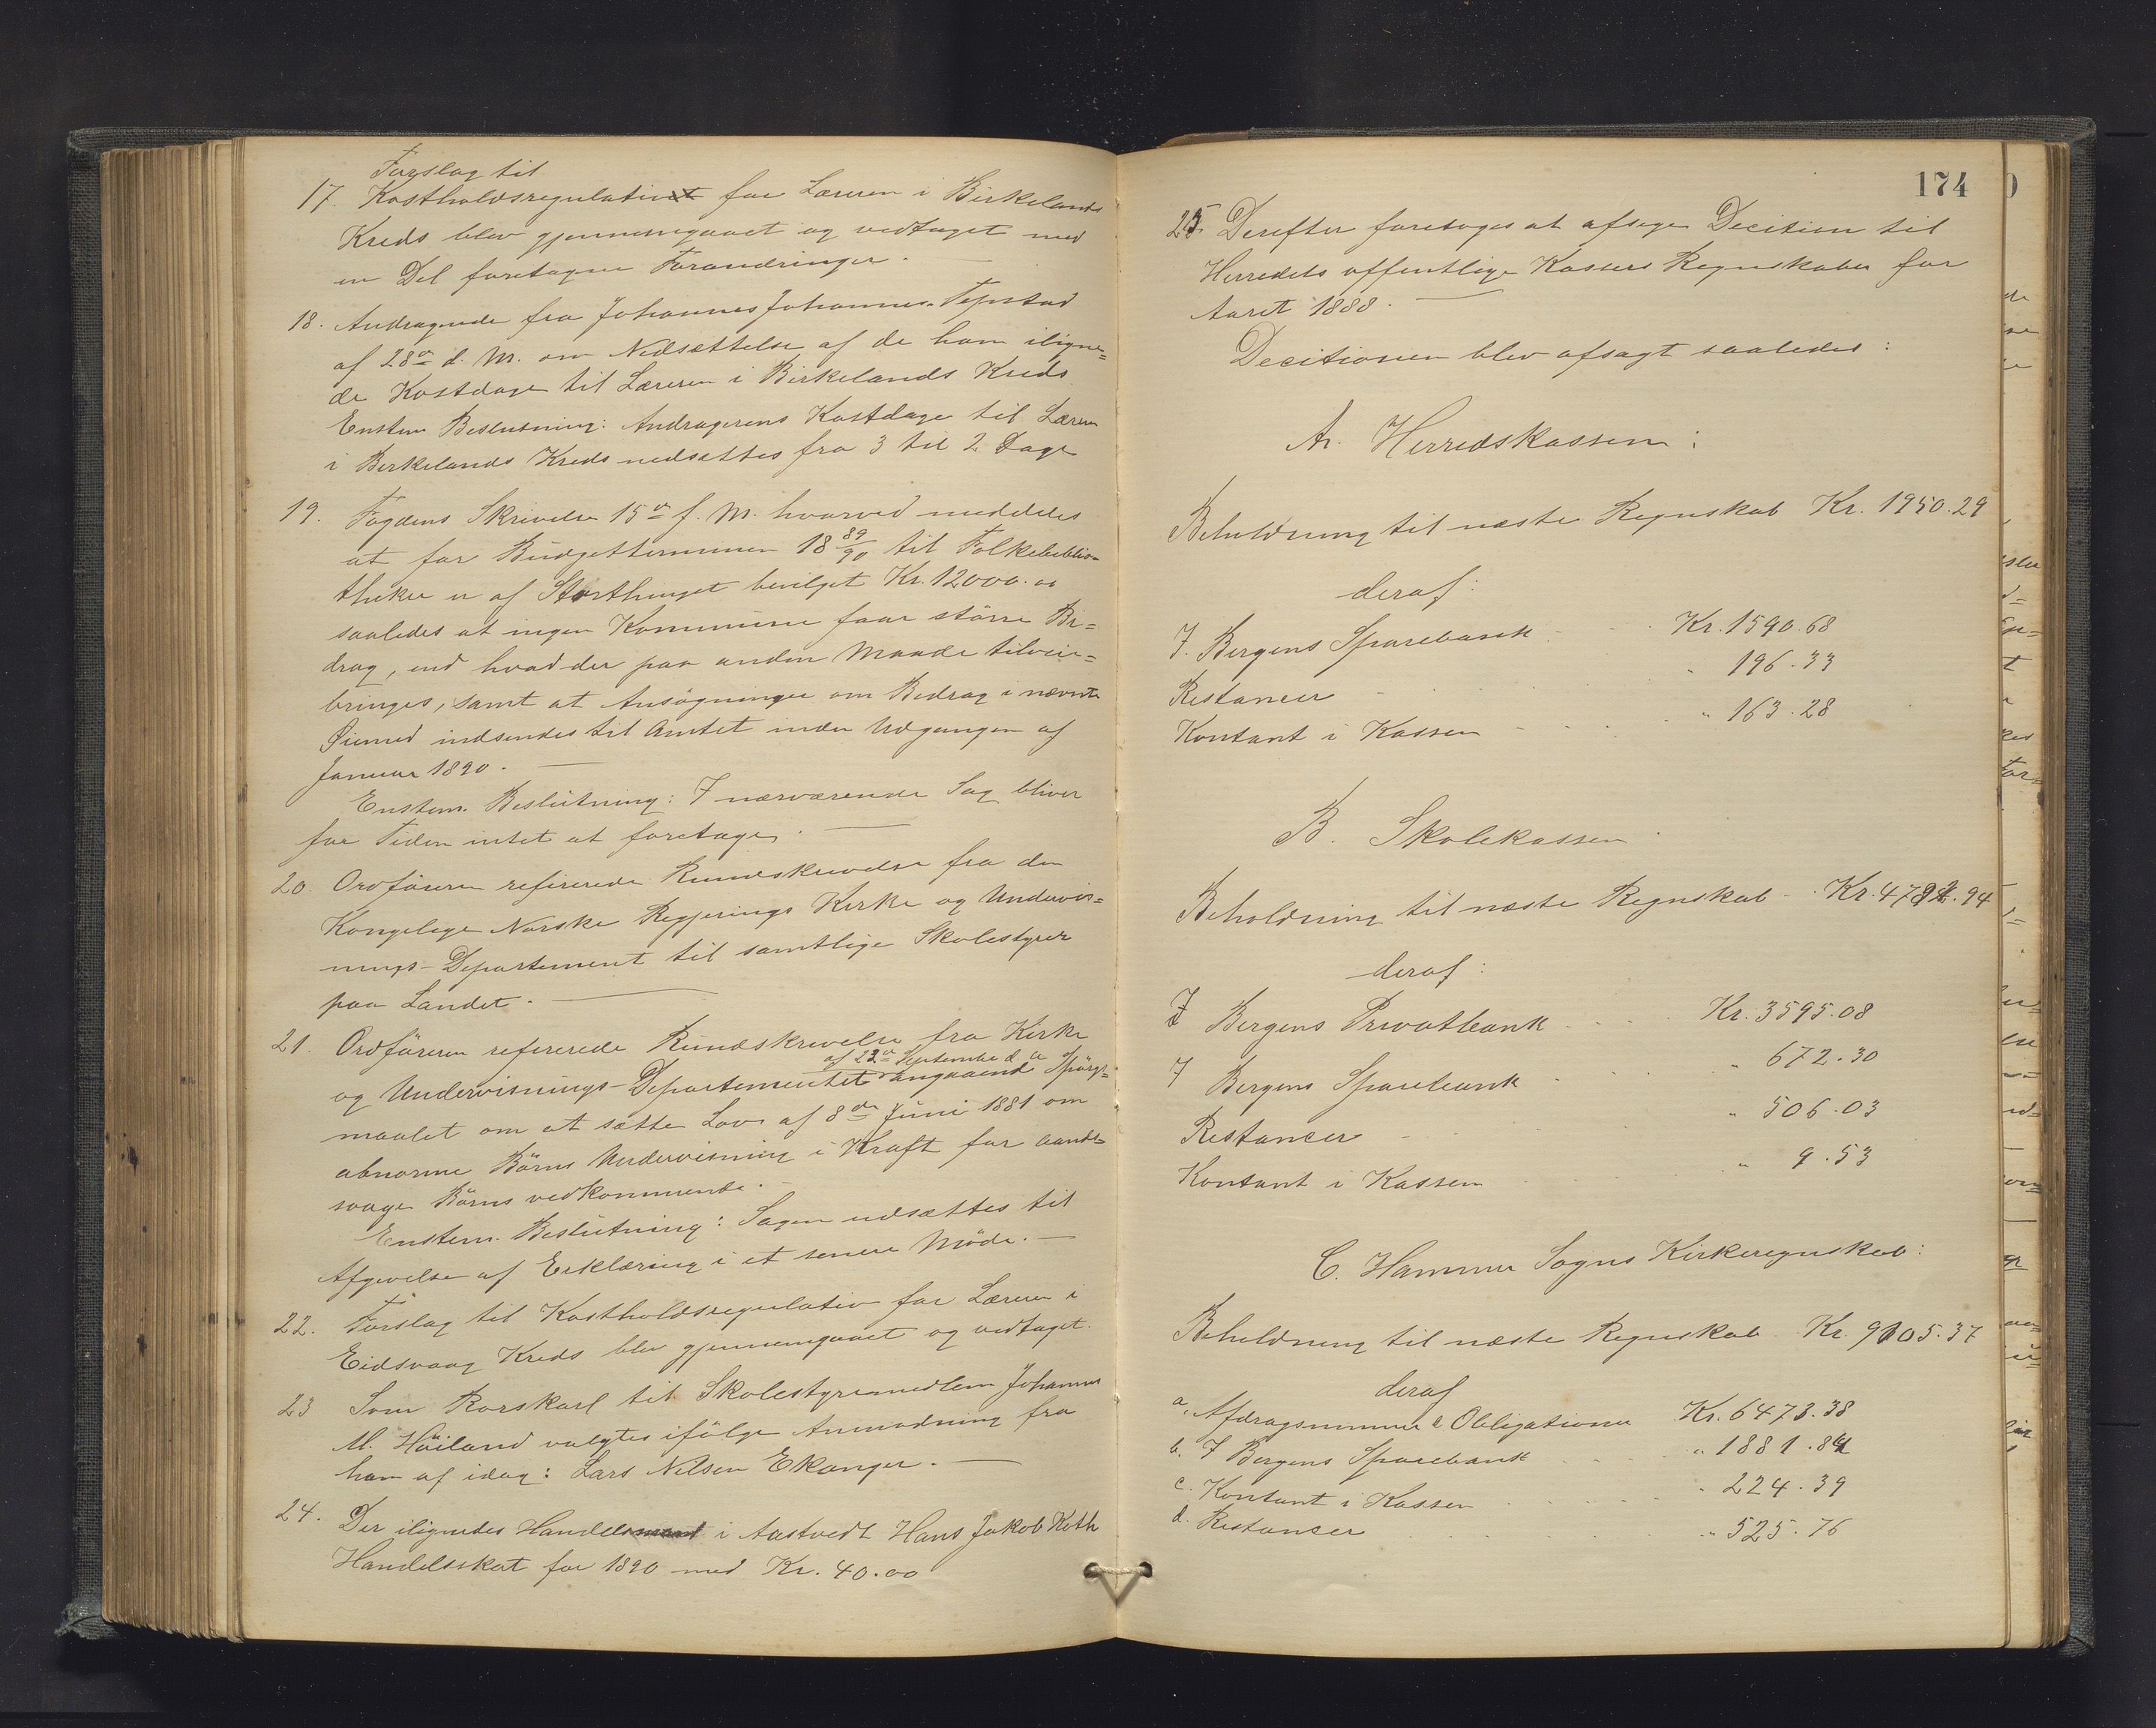 Forslag til
17. Kostholdsregulativ for Læreren i Birkelands
Kreds blev gjennemgaaet og vedtaget med
en Del foretagne Forandringer. —
18. Andragende fra Johannes Johannes. Tepstad
af 28de d. M. om Nedsættelse af de ham iligne=
de Kostdage til Læreren i Birkelands Kreds
Enstem Beslutning: Andragerens Kostdage til Læreren
i Birkelands Kreds nedsættes fra 3 til 2 Dage
19. Fogdens Skrivelse 15de f. M. hvorved meddeles
at for Budgetterminen 18 89/90 til Folkebiblio-
theker er af Storthinget bevilget Kr. 12000.00
saaledes at ingen Kommune faar större Bi=
drag, end hvad der paa anden Maade tilveie=
bringes, samt at Ansögninger om Bidrag i nævnte
Øiemed indsendes til Amtet inden Udgangen af
Januar 1890. —
Enstem. Beslutning: I nærværende Sag bliver
for Tiden intet at foretage. —
20. Ordföreren refererede Rundskrivelse fra den
Kongelige Norske Regjerings Kirke og Undervis=
nings-Departement til samtlige Skolestyrer
paa Landet. —
21. Ordföreren refererede Rundskrivelse fra Kirke
af 23de September d. A.
og Undervisnings-Departementet angaaende Spörgs=
maalet om at sætte Lov af 8de Juni 1881 om
abnorme Börns Undervisning i Kraft for aands=
svage Börns vedkommende.
Enstem. Beslutning: Sagen udsættes til
Afgivelse af Erklæring i et senere Möde. —
22. Forslag til Kostholdsregulativ for Læreren i
Eidsvaag Kreds blev gjennemgaaet og vedtaget.
23 Som Rorskarl til Skolestyremedlem Johannes
M. Höiland valgtes ifölge Anmodning fra
ham af idag: Lars Nilsen Ekanger. —
24. Der ilignedes Handelsmand i Aastvedt Hans Jakob Keth
Handelsskat for 1890 med Kr. 40.00
174
25 Derefter foretoges at afsige Decition til
Herredets offentlige Kassers Regnskaber for
Aaret 1888. —
Decitionen blev afsagt saaledes:
A. Herredskassen:
Beholdning til næste Regnskab Kr. 1950.29
deraf:
I. Bergens Sparebank - Kr. 1590.68
Restancer - - - " 196.33
Kontant i Kassen - - - " 163.28
B. Skolekassen
Beholdning til næste Regnskab - Kr. 4782.94
deraf:
I Bergens Privatbank - - - Kr. 3595.08
I Bergens Sparebank - - " 672.30
Restancer - - - " 506.03
Kontant i Kassen - - " 9.53
C. Hammer Sogns Kirkeregnskab:
Beholdning til næste Regnskab Kr. 9105.37
deraf
a. Afdragssummer & Obligationer Kr. 6473.38
b. I Bergens Sparebank - - " 1881.84
c. Kontant i Kassen - - - " 224.39
d. Restancer - - - " 525.76